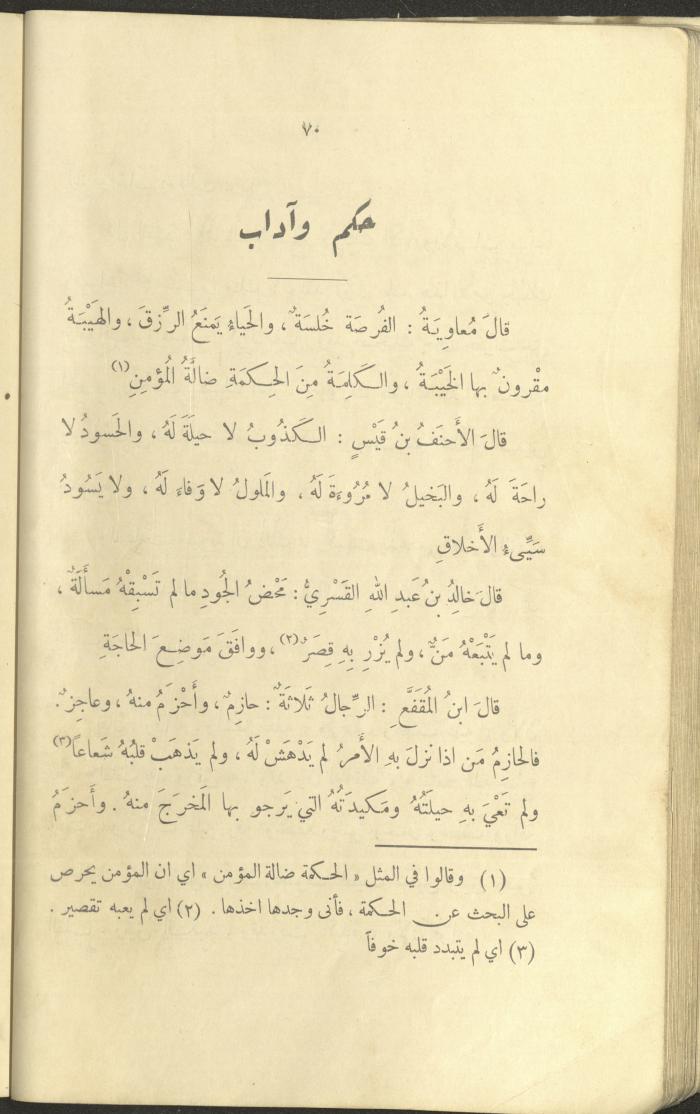 ٧٠
حكم وآداب
قالَ مُعاوِيَةُ : الفُرصَة خُلسَةٌ ، والحَياءُ يَمنَعُ الرِّزقَ ، والهَيْبَةُ
مقْرونٌ بها الخَيْبَةُ ، والكَلِمَةُ مِنَ الحِكمَةِ ضالَّةُ المُؤمِنِ (١)
قالَ الأَحنَفُ بنُ قَيْسٍ : الكَذُوبُ لا حيلَةَ لَهُ ، والحَسودُ لا
راحَةَ لَهُ ، والبَخيلُ لا مُرُوءَةَ لَهُ ، والمَلولُ لا وَفاءَ لَهُ ، ولا يَسُودُ
سَيِّىءُ الأَخلاقِ
قالَ خالِدُ بنُ عَبدِ اللهِ القَسْرِيُّ : مَحْضُ الجُودِ ما لم تَسْبِقْهُ مَسأَلَةٌ ،
وما لم يَتْبَعْهُ مَنٌّ ، ولم يُزْرِ بِهِ قِصَرٌ (٢) ، ووافَقَ مَوضِعَ الحاجَةِ
قالَ ابنُ المُقَفَّعِ : الرِّجالُ ثَلاثَةٌ : حازِمٌ ، وأَحْزَمُ منهُ ، وعاجِزٌ .
فالحازِمُ مَن اذا نزلَ بهِ الأَمرُ لم يَدْهَشْ لَهُ ، ولم يَذهَبْ قلبُهُ شَعاعاً (٣)
ولم تَعْيَ بِهِ حيلَتُهُ ومَكيدَتُهُ التي يَرجو بها المَخرَجَ منهُ . وأَحزَمُ
(١) وقالوا في المثل « الحكمة ضالة المؤمن » اي ان المؤمن يحرص
على البحث عن الحكمة ، فأنى وجدها اخذها . (٢) اي لم يعبه تقصير .
(٣) اي لم يتبدد قلبه خوفاً